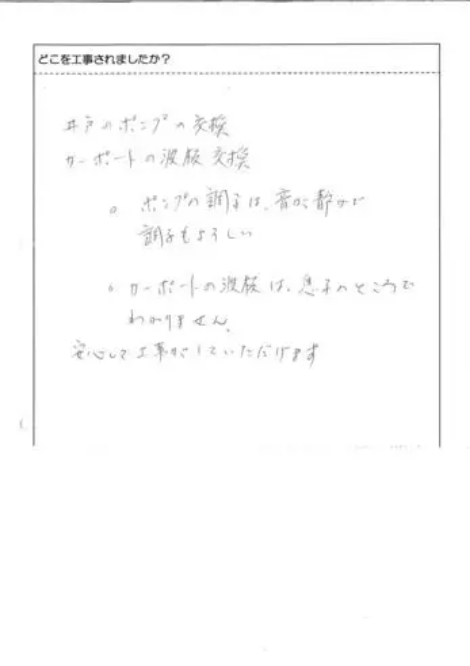 どこを工事されましたか？
井戸のポンプの交換
カーポートの波板交換
。ポンプの調子は、音が静かで
調子もよろしい
。カーポートの波板は、息子のところで
わかりません。
安心して工事がしていただけます